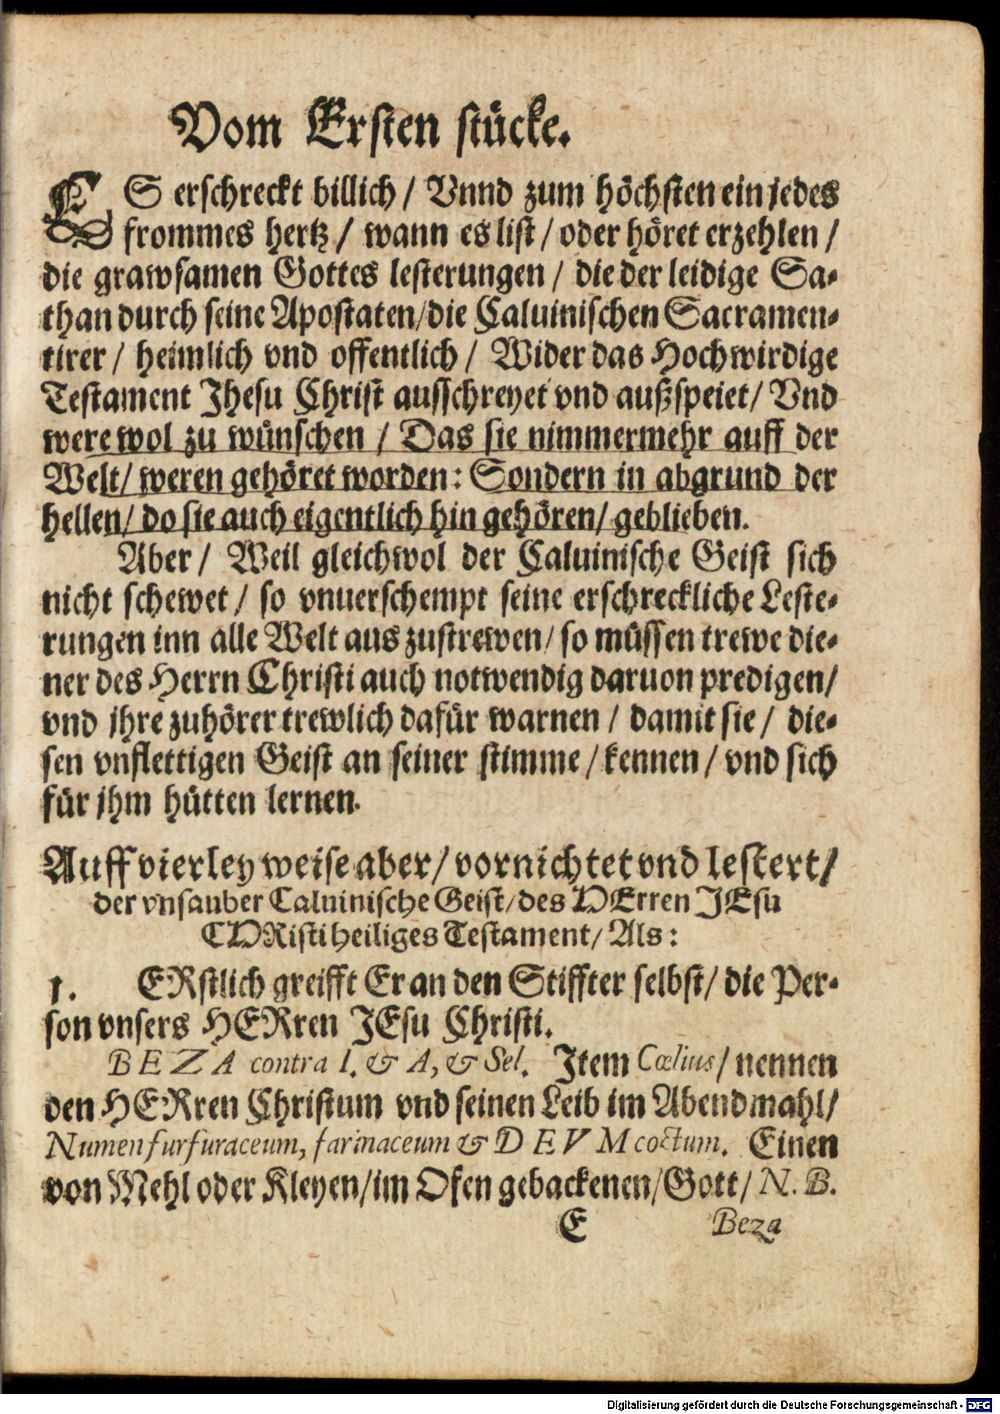 Vom Ersten stücke.
ES erschreckt billich / Vnnd zum höchsten ein jedes
frommes hertz / wann es list / oder höret erzehlen /
die grawsamen Gottes lesterungen / die der leidige Sa-
than durch seine Apostaten/die Caluinischen Sacramen-
tirer / heimlich vnd offentlich / Wider das Hochwirdige
Testament Jhesu Christ ausschreyet vnd außspeiet/ Vnd
were wol zu wünschen / Das sie nimmermehr auff der
Welt/ weren gehöret worden: Sondern in abgrund der
hellen/ do sie auch eigentlich hin gehören/ geblieben.
Aber / Weil gleichwol der Caluinische Geist sich
nicht schewet / so vnuerschempt seine erschreckliche Leste-
rungen inn alle Welt aus zustrewen/ so müssen trewe die-
ner des Herrn Christi auch notwendig daruon predigen/
vnd jhre zuhörer trewlich dafür warnen / damit sie / die-
sen vnflettigen Geist an seiner stimme / kennen / vnd sich
für jhm hütten lernen.
Auff vierley weise aber/ vornichtet vnd lestert/
der vnsauber Caluinische Geist/ des HErren JEsu
CHRisti heiliges Testament/ Als:
1. ERstlich greifft Er an den Stiffter selbst/ die Per-
son vnsers HERren JEsu Christi.
BEZA contra I. & A, & Sel. Item Cœlius/ nennen
den HERren Christum vnd seinen Leib im Abendmahl/
Numen furfuraceum, farinaceum & DEVM coctum. Einen
von Mehl oder Kleyen/im Ofen gebackenen/Gott/ N. B.
E Beza
Digitalisierung gefördert durch die Deutsche Forschungsgemeinschaft - DFG